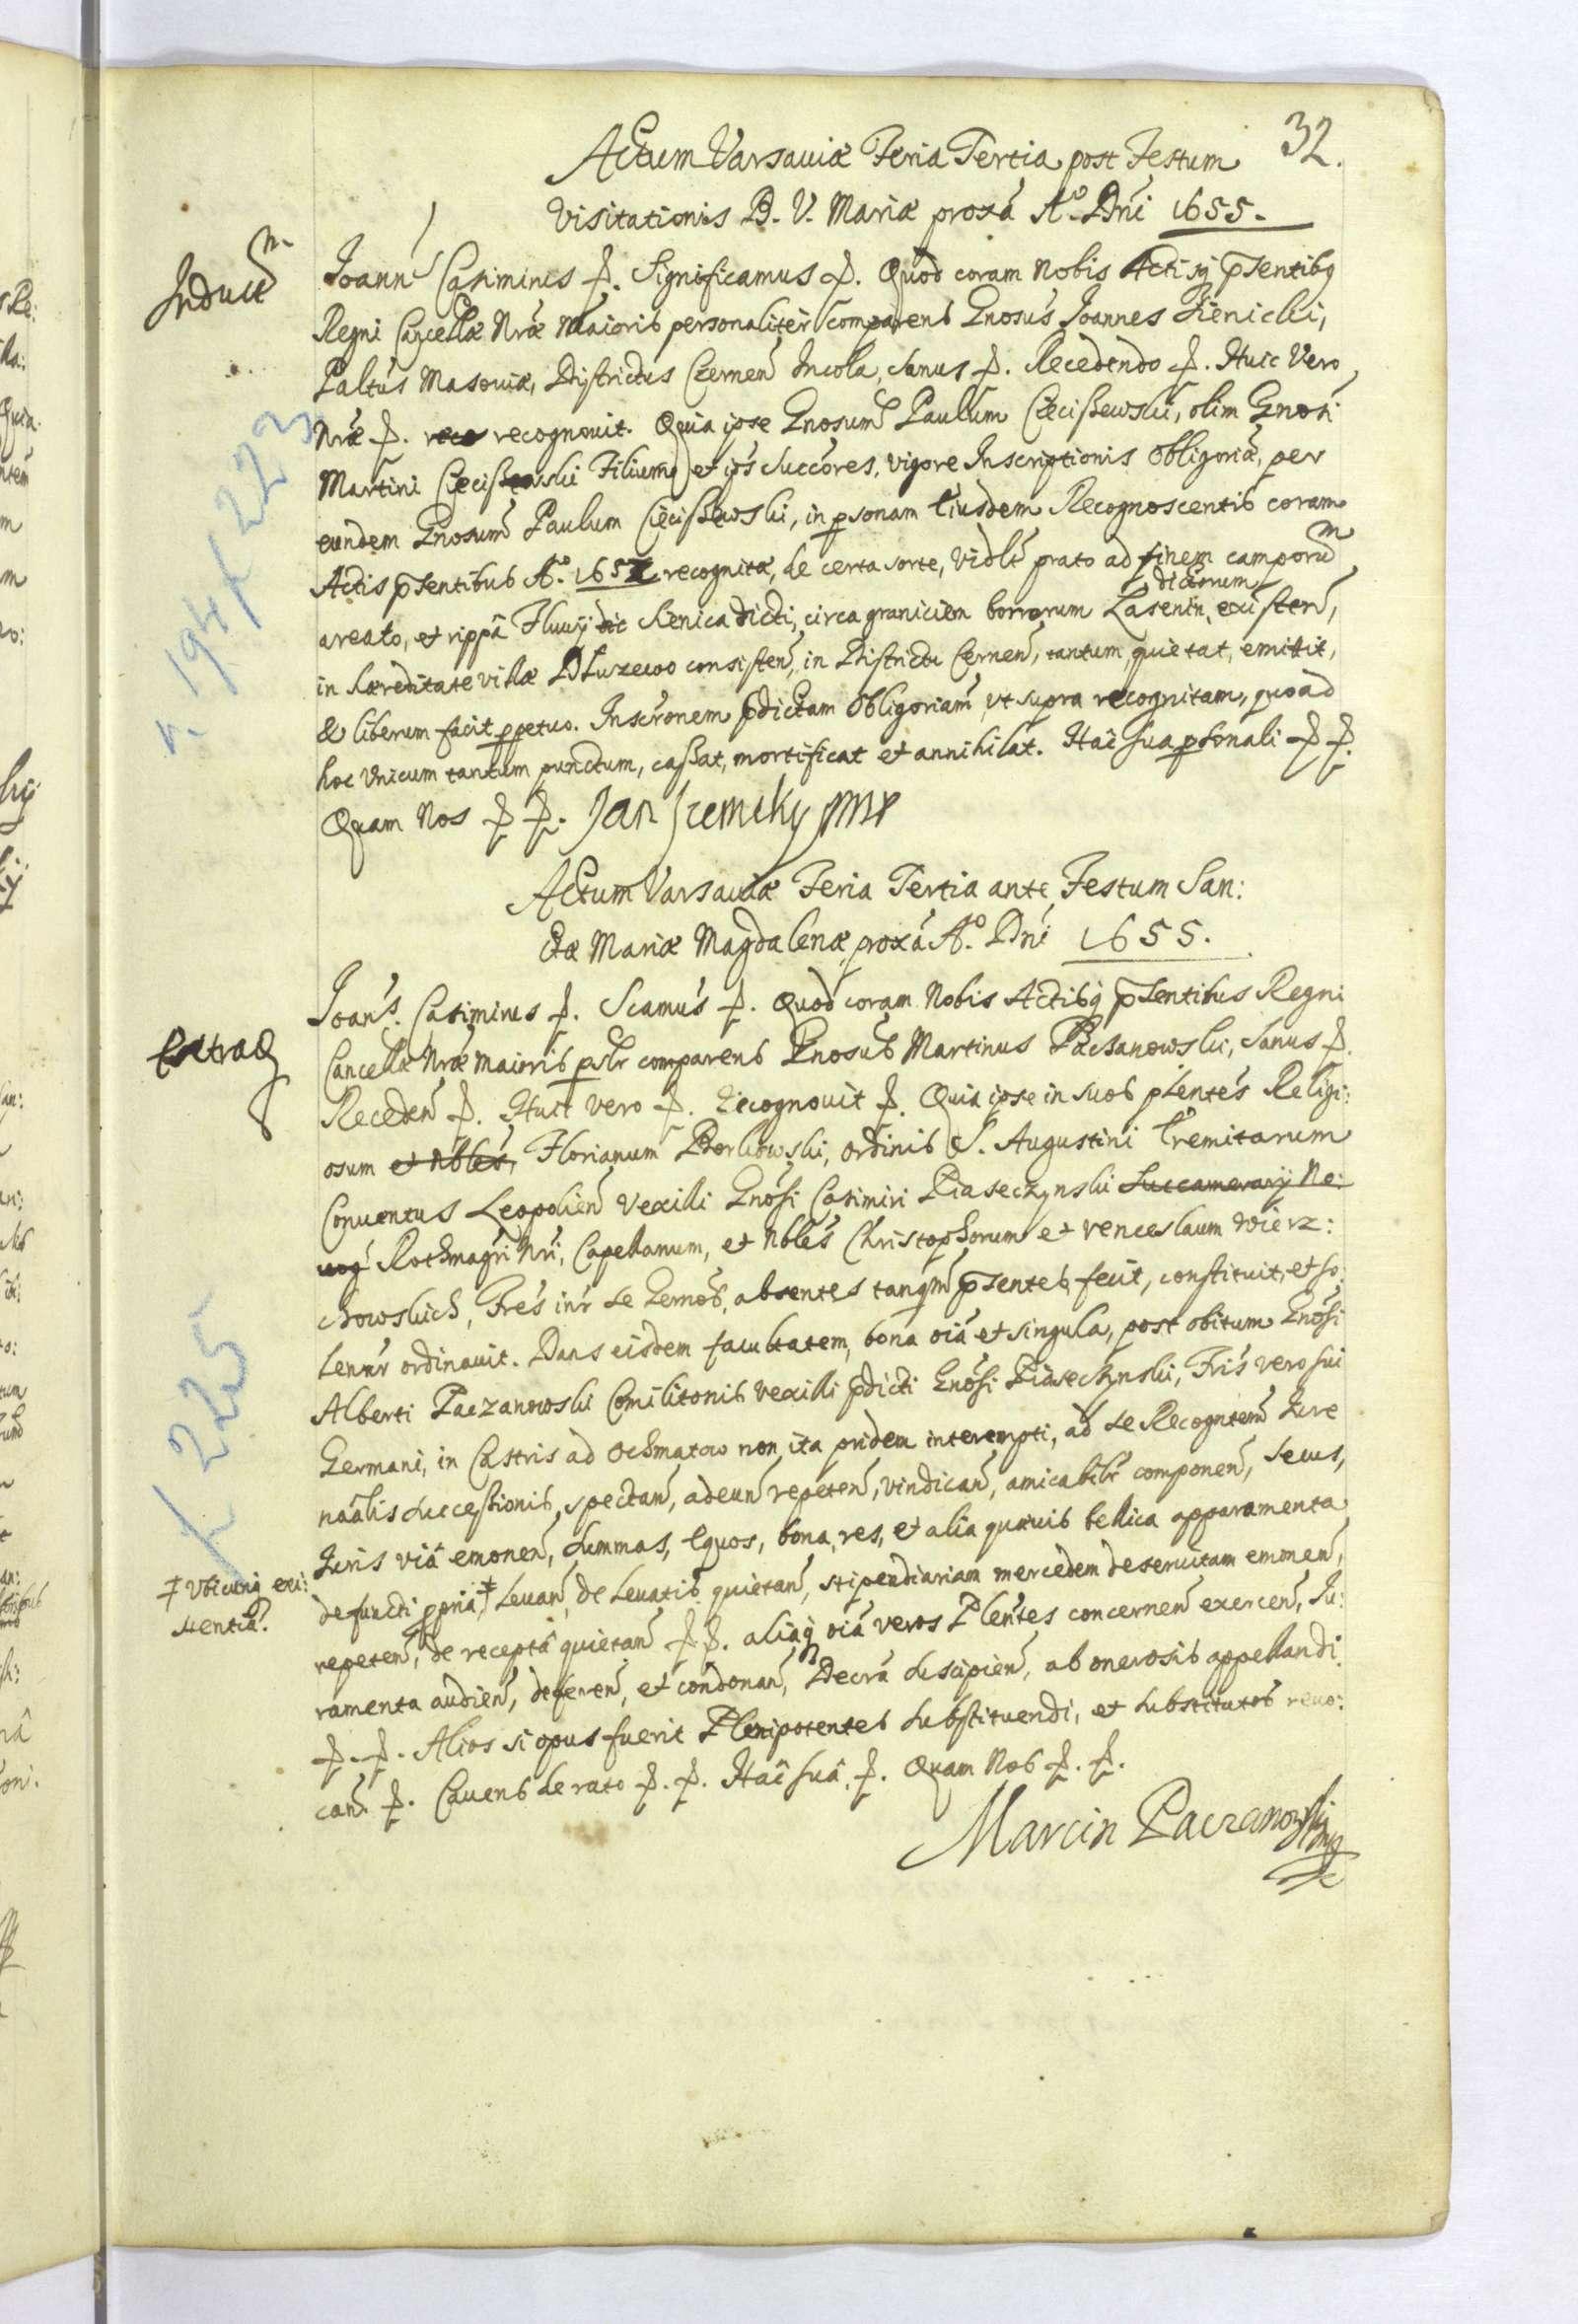 32.
Actum Varsaviæ Feria Tertia post Festum
Visitationis B. V. Mariæ proxã Aº. Dñi 1655.
Induct
Joann Casimirus etc. Significamus etc. Quod coram Nobis Actisq̃ p̃sentibq
Regni Cancellæ Nr̃æ Maioris personaliter comparens Gnosus Joannes Sienicki,
Paltus Masoviæ, Districtus Czernen̄ Incola, sanus etc. Recedendo etc. Huic Vero
Nr̃æ etc. recognovit. Quia ipse Gnosum Paulum Ciecißewski, olim Gnosi
Martini Ciecißewski Filium et ip̃s Succores, vigore Inscriptionis Obligoriæ, per
eundem Gnosum Paulum Ciecißewski, in p̱sonam Eiusdem Recognoscentis coram
Actis p̃sentibus Aº. 165 recognitæ, de certa sorte, vidlt prato ad finem camporum
areato, et rippâ Fluvij Sienica dicti, circa graniciem borrorum Lasenin dictorum existen̄,
in hæreditate villæ Dłuzewo consisten̄, in Districtu Cernen̄, tantum quietat, emittit,
& liberum facit p̱petuo. Inscr̃onem p̃dictam Obligoriam, ut supra recognitam, quoad
hoc unicum tantum punctum, caßat, mortificat et annihilat. Hac̃ Sua p̱sonali etc. etc.
Quam Nos etc. etc. Jan mp
Actum Varsaviæ Feria Tertia ante Festum San:
ctæ Mariæ Magdalenæ proxã Aº. Dñi 1655.
Extrad
Joan̄s. Casimirus etc. Scamus etc. Quod coram Nobis Actisq̃ p̃sentibus Regni
Cancellæ Nr̃æ Maioris p̱slr comparens Gnosus Martinus Paczanowski, Sanus etc.
Receden̄ etc. Huic vero etc. recognovit etc. Quia ipse in suos plentes Religi:
osum et Nbles, Florianum Borkowski, ordinis S. Augustini Eremitarum
Conventus Leopolien̄ Vexilli Gnosi Casimiri Piaseczynski Succamerarij
Rothmagri Nr̃i, Capellanum, et Nbles Christophorum et Venceslaum Wierz:
chowskich, Fres inr se Germos, absentes tanqm̃ p̃sentes, fecit, constituit, et so:
lennr ordinavit. Dans eisdem facultatem, bona oiã et singula, post obitum Gnosi
Alberti Paczanowski Comilitonis Vexilli p̃dicti Gnosi Piaseczynski, Fris vero sui
Germani, in Castris ad Ochmatow non ita pridem interempti, ad se Recogntem Iure
naãlis Succeßionis, spectan̄, adeun̄ repeten̄, vindican̄, amicabiłr componen̄, seus,
Iuris viâ emonen̄, summas, Equos, bona, res, et alia quævis bellica apparamenta
defuncti p̱pria, ‡ levan̄, de levatis quietan̄, stipendiariam mercedem deservitam emonen̄,
‡ Ubicunq exi:
stentia.
repeten̄, de receptâ quietan̄ etc. etc. aliaq̃ oiã veros Plentes concernen̄ exercen̄, Iu:
ramenta audien̄, deferen̄, et condonan̄, Decrã suscipien̄, ab onerosis appellandi
etc. etc. Alios si opus fuerit Plenipotentes substituendi, et substitutos revo:
can̄ etc. Cavens de rato etc. etc. Hac̃ Suâ etc. Quam Nos etc. etc.
Marcin Paczanowski mp
194 / 223
225